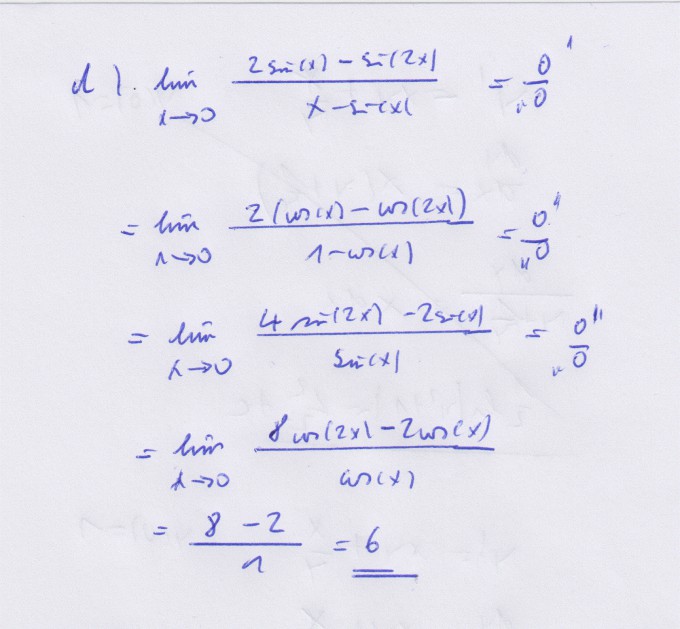 d). lim x→0 (2 sin(x) - sin(2x)) / (x - sin(x)) = "0/0"
= lim x→0 (2(cos(x) - cos(2x))) / (1 - cos(x)) = "0/0"
= lim x→0 (4 sin(2x) - 2 sin(x)) / (sin(x)) = "0/0"
= lim x→0 (8 cos(2x) - 2 cos(x)) / (cos(x))
= (8 - 2) / 1 = 6